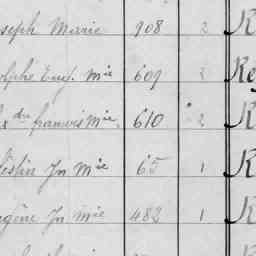 seph Marie 908 2 R
olphe Eug. Mie 609 2 Re
dre francois Mie 610 2 R
lestin Jn Mie 65 1 R
gène Jn Mie 482 1 R